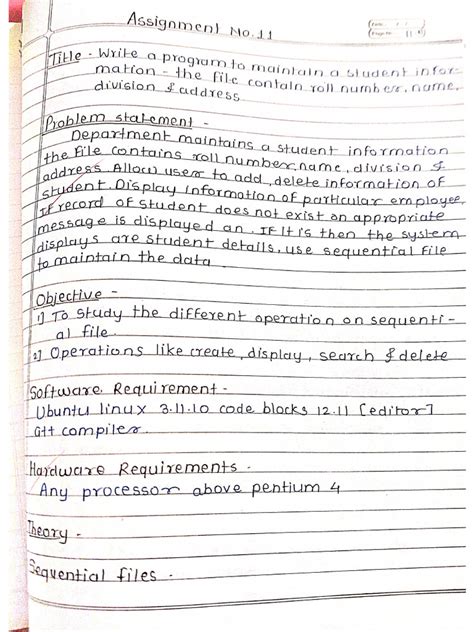 Assignment No. 11
Page No. 11
Title - Write a program to maintain a student infor-
mation - the file contain roll number, name,
division & address
Problem statement -
Department maintains a student information
the file contains roll number, name, division &
address Allow user to add, delete information of
student. Display information of particular employee,
If record of student does not exist an appropriate
message is displayed an. If It is then the system
displays are student details, use sequential file
to maintain the data
Objective -
1] To study the different operation on sequenti-
al file.
2] Operations like create, display, search & delete
Software Requirement -
Ubuntu linux 3.11.10 code blocks 12.11 [editor]
G++ compiler.
Hardware Requirements -
Any processor above pentium 4
Theory -
Sequential files -